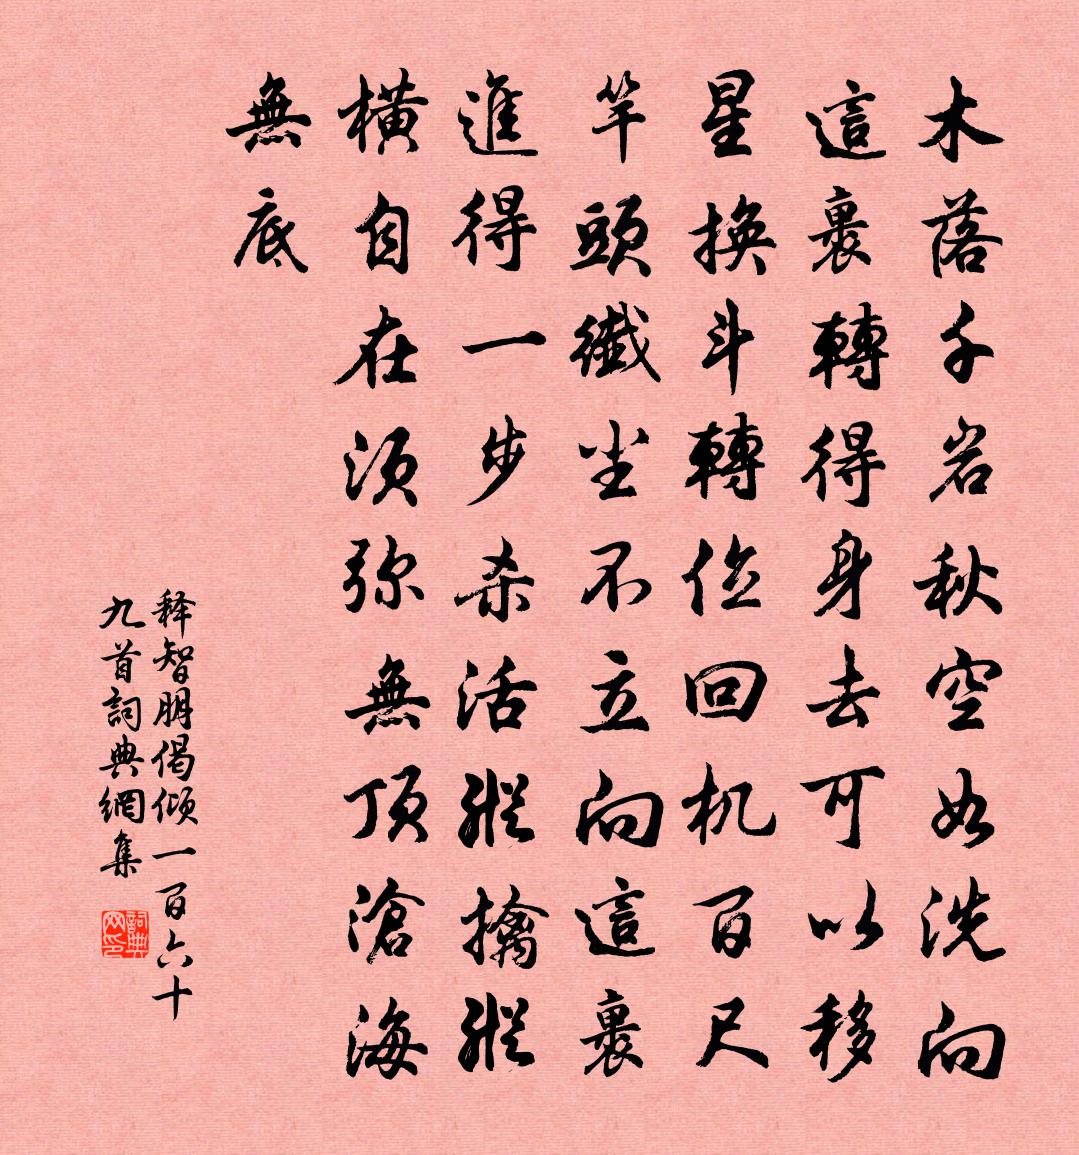 木落千岩秋空如洗向
這裏轉得身去可以移
星換斗轉位回机百尺
竿頭纖尘不立向這裏
進得一步杀活縱擒縱
橫自在須弥無頂滄海
無底
释智朋偈傾一百六十
九首詞典網集
詞典网印